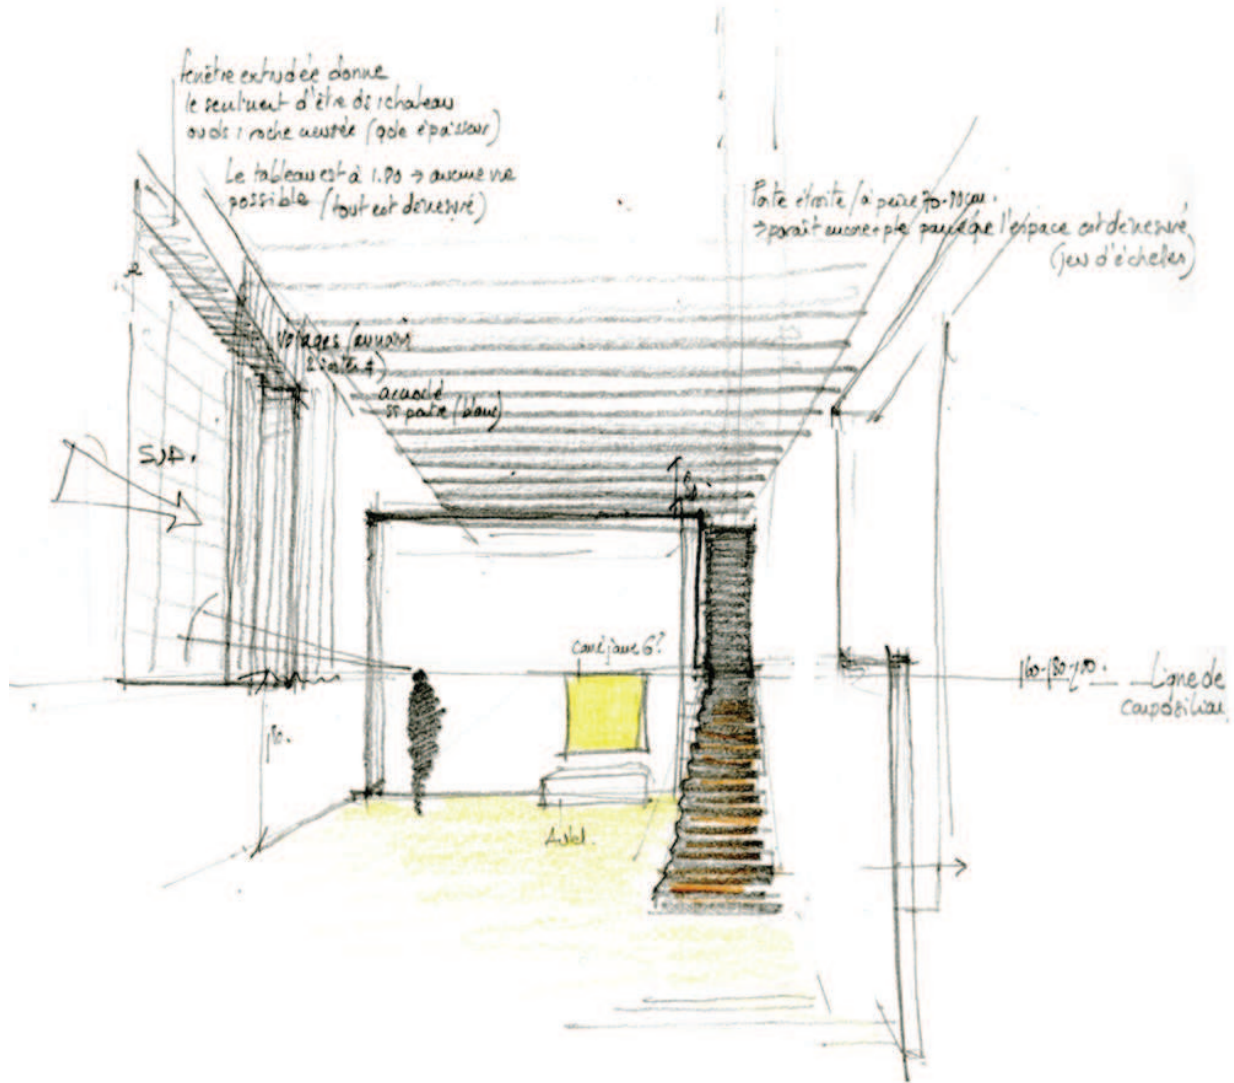 fenêtre extrudée donne
le sentiment d'être ds 1 chateau
ou ds 1 roche creusée (qde épaisseur)
Le tableau est à 1.80 → aucune vue
possible (tout est démesuré)
Porte étroite / à peine 70-80 cm.
→ paraît encore + pte parce que l'espace est démesuré
(jeu d'échelles)
SUD.
carré jaune 6?
160-180-200.
Ligne de
composition
180.
Autel.